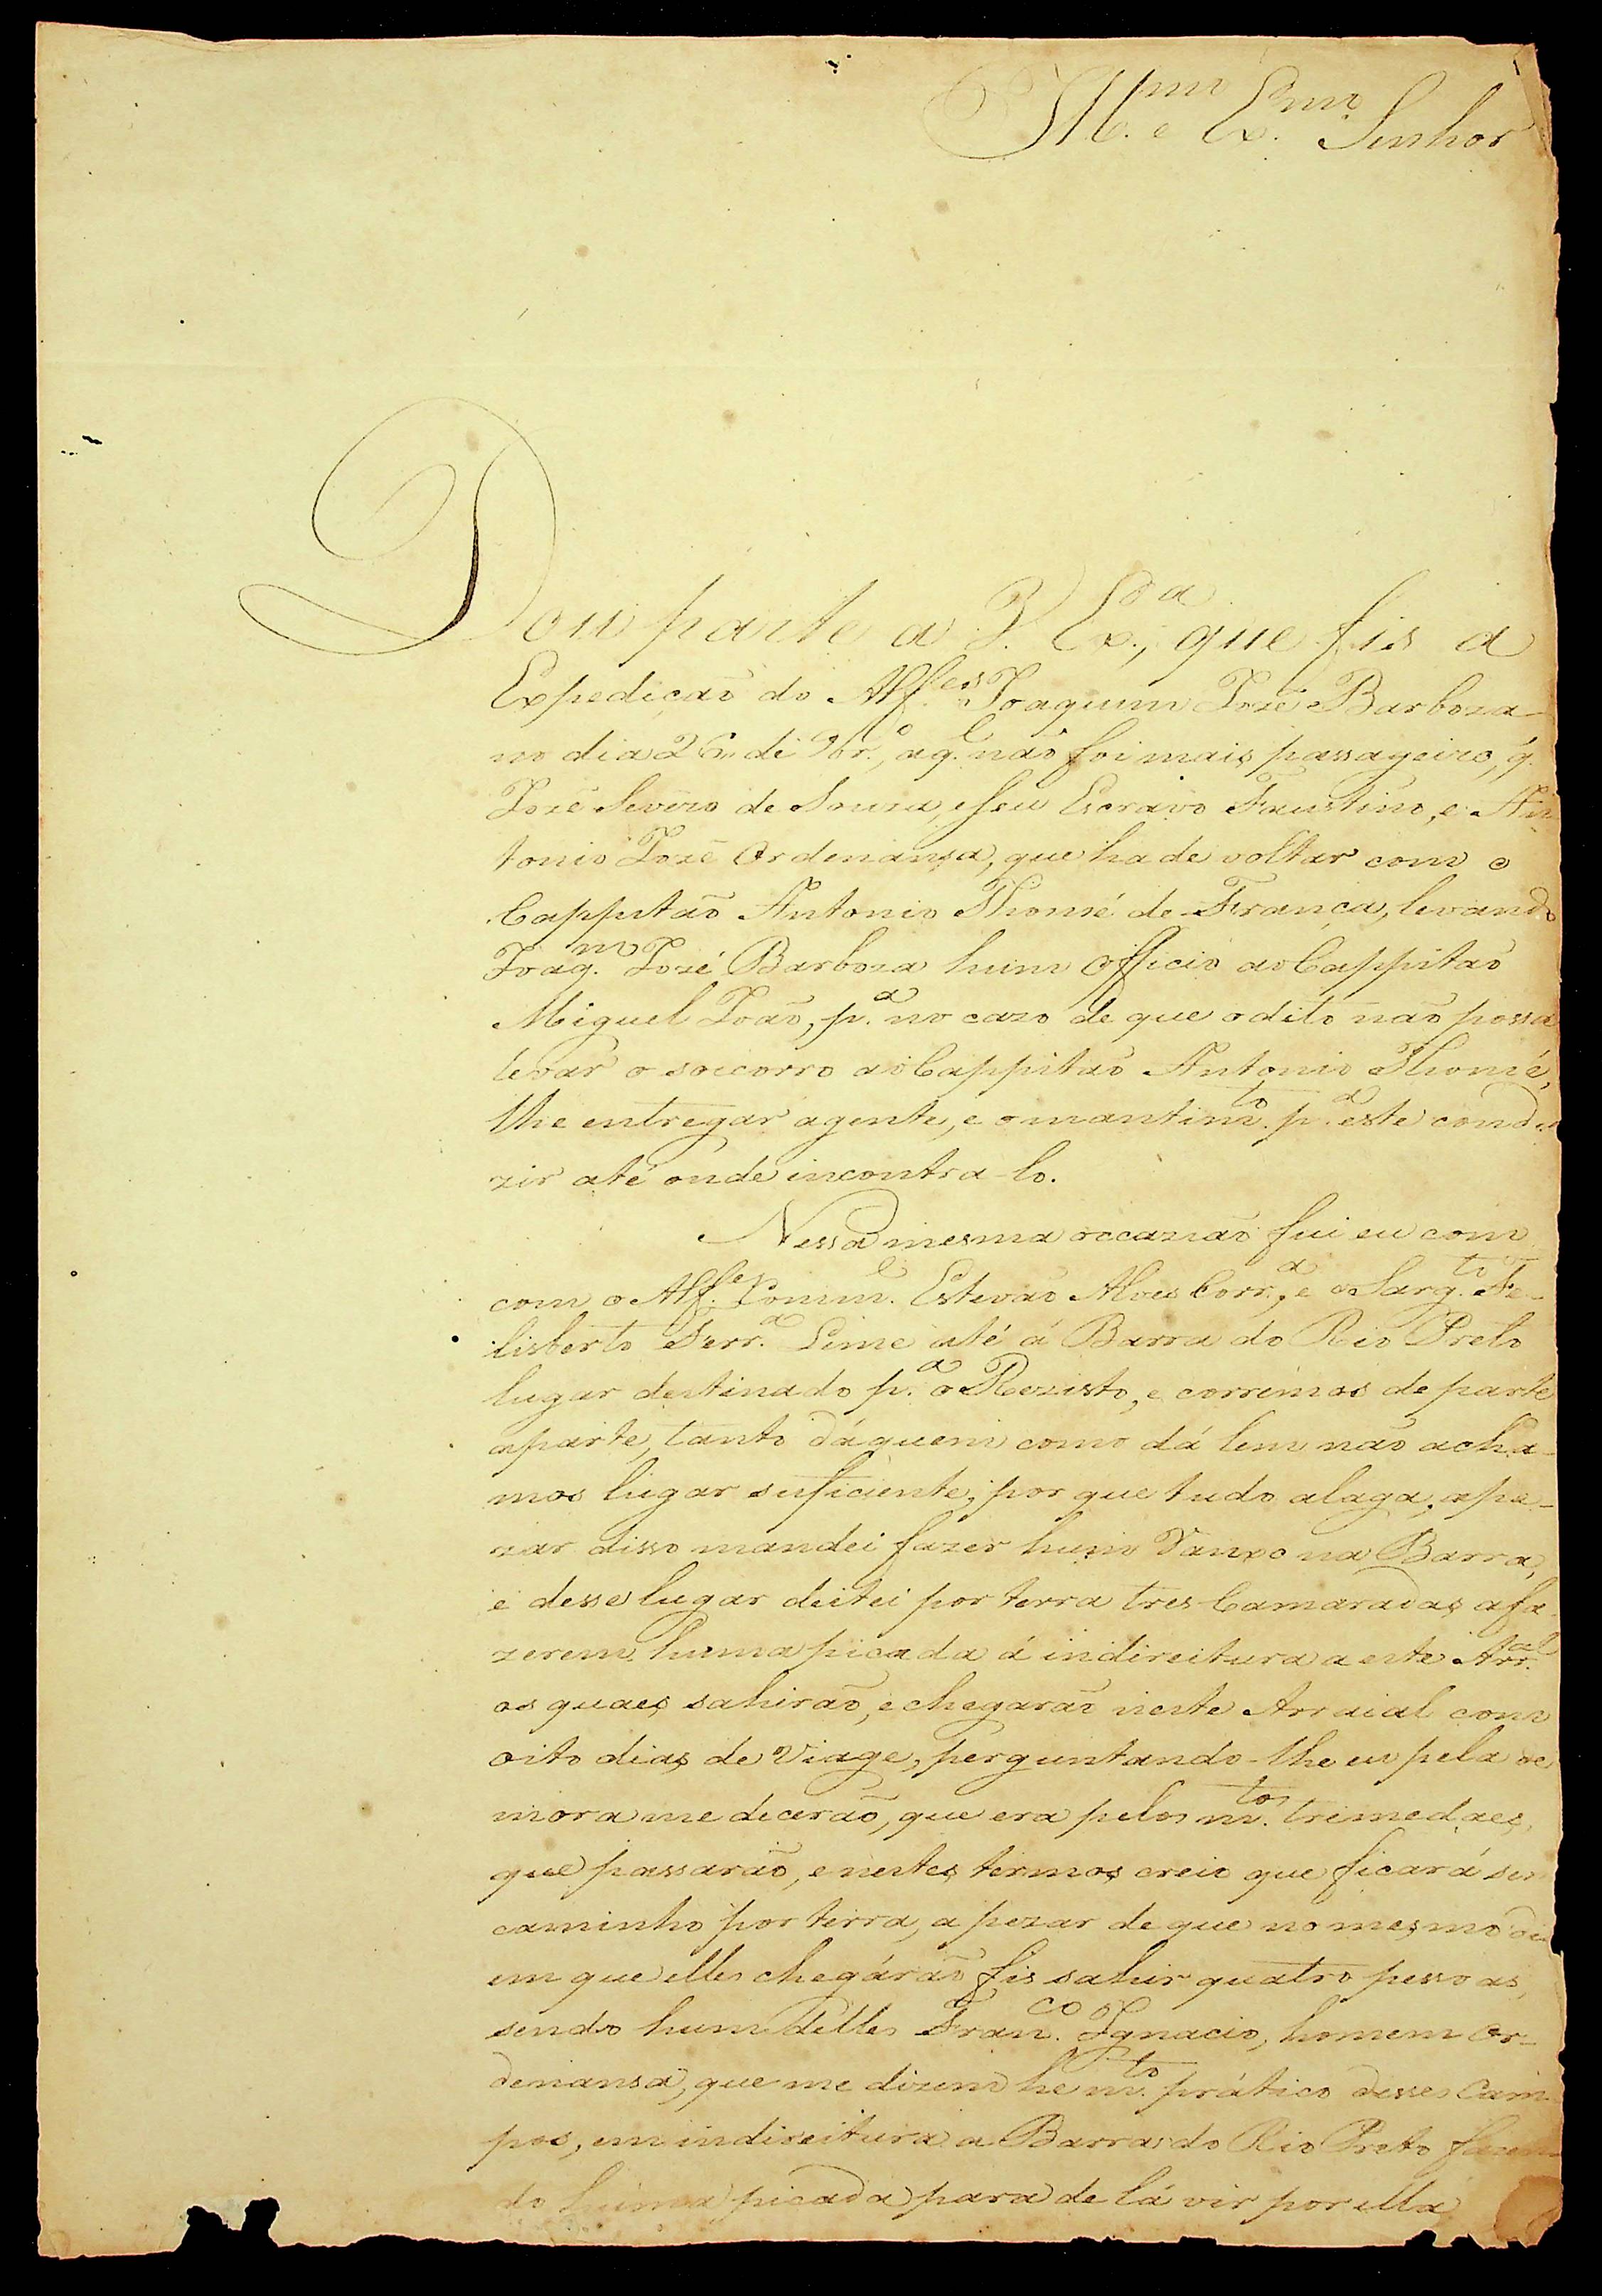 Ill.mo e Ex.mo Senhor
Dou parte a V. Ex.cia, que fis a
Expedição do Alf.es Joaquim Jozé Barboza
no dia 26 de 9br.º, aq.l não foi mais passageiro, q.
Jozé Severo de Souza, e seu Escravo Faustino, e An
tonio Jozé Ordenansa, que ha de voltar com o
Cappitão Antonio Thomé de França, levando
Joaq.m Jozé Barboza hum Officio ao Cappitão
Miguel João, p.a no cazo de que o dito não possa
levar o socorro ao Cappitão Antonio Thomé,
lhe entregar agente, e o mantim.to p.a este condu
zir até onde incontra-lo.
Nessa mesma occazião fui eu com
com o Alf.es Comm.e Estevão Alves Corr.a, e o Sarg.to Fe-
lisberto Ferr.a Lime até á Barra do Rio Preto
lugar destinado p.a o Rezisto, e corrémos de parte
aparte, tanto dáquem como dá lem não acha-
mos lugar suficiente, por que tudo alaga, ape-
zar disso mandei fazer hum Ranxo na Barra,
e desse lugar deitei por terra tres Camaradas afa
zerem huma picada á indireitura a este Arr.al
os quaes sahirão, e chegarão neste Arraial com
oito dias de Viage, perguntando-lhe eu pela de
mora me decerão, que era pelos m.tos trimedaes,
que passarão, e nestes termos creio que ficará sem
caminho por terra, a pezar de que no mesmo dia
em que elles chegárão fis sahir quatro pessoas,
sendo hum delles Fran.co Ignacio, homem Or-
denansa, que me dizem he m.to prático desses Cam
pos, em indireitura a Barra do Rio Preto fazen
do huma picada para de lá vir por ella